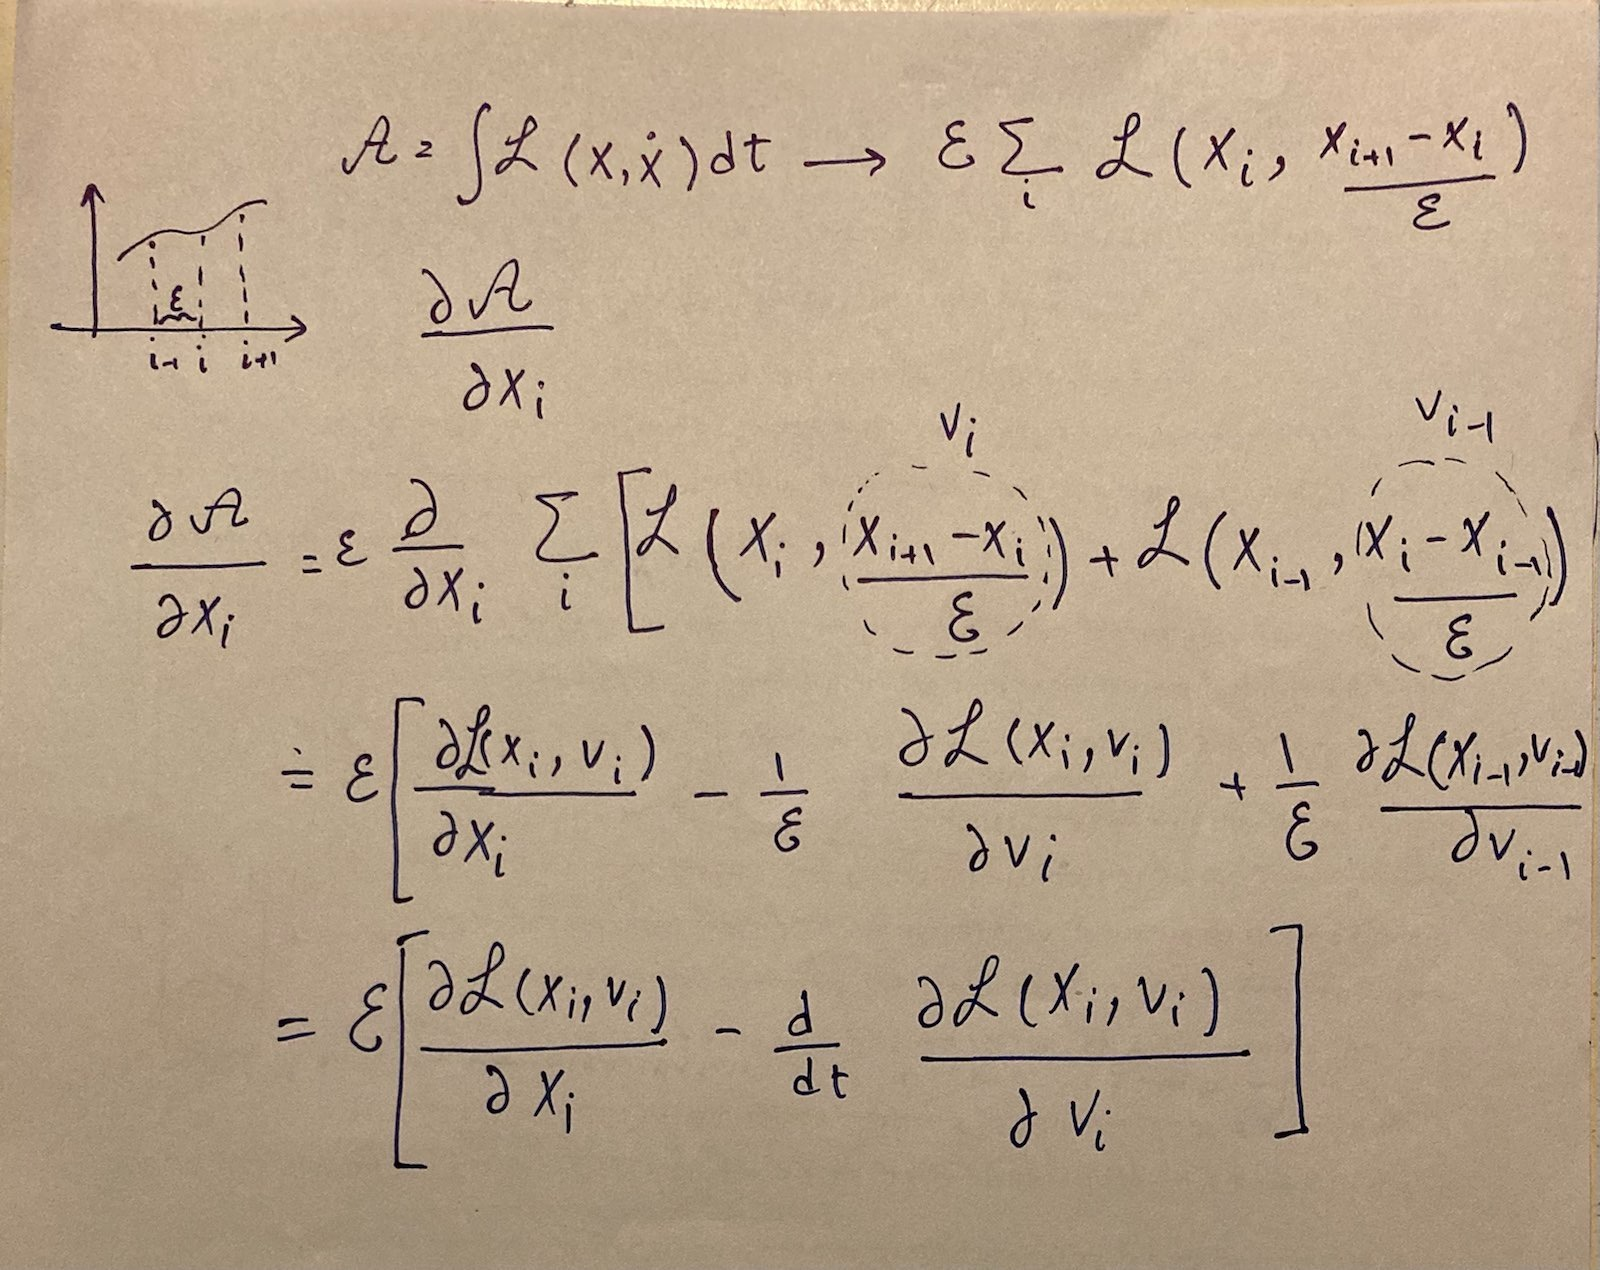 𝒜 = ∫ℒ (x, ẋ) dt → ε Σ_i ℒ (x_i, (x_{i+1} - x_i)/ε)
ε
i-1 i i+1
∂𝒜/∂x_i
v_i v_{i-1}
∂𝒜/∂x_i = ε ∂/∂x_i Σ_i [ℒ (x_i, (x_{i+1} - x_i)/ε) + ℒ (x_{i-1}, (x_i - x_{i-1})/ε)
≐ ε [∂ℒ(x_i, v_i)/∂x_i - 1/ε ∂ℒ(x_i, v_i)/∂v_i + 1/ε ∂ℒ(x_{i-1}, v_{i-1})/∂v_{i-1}
= ε [∂ℒ(x_i, v_i)/∂x_i - d/dt ∂ℒ(x_i, v_i)/∂v_i]